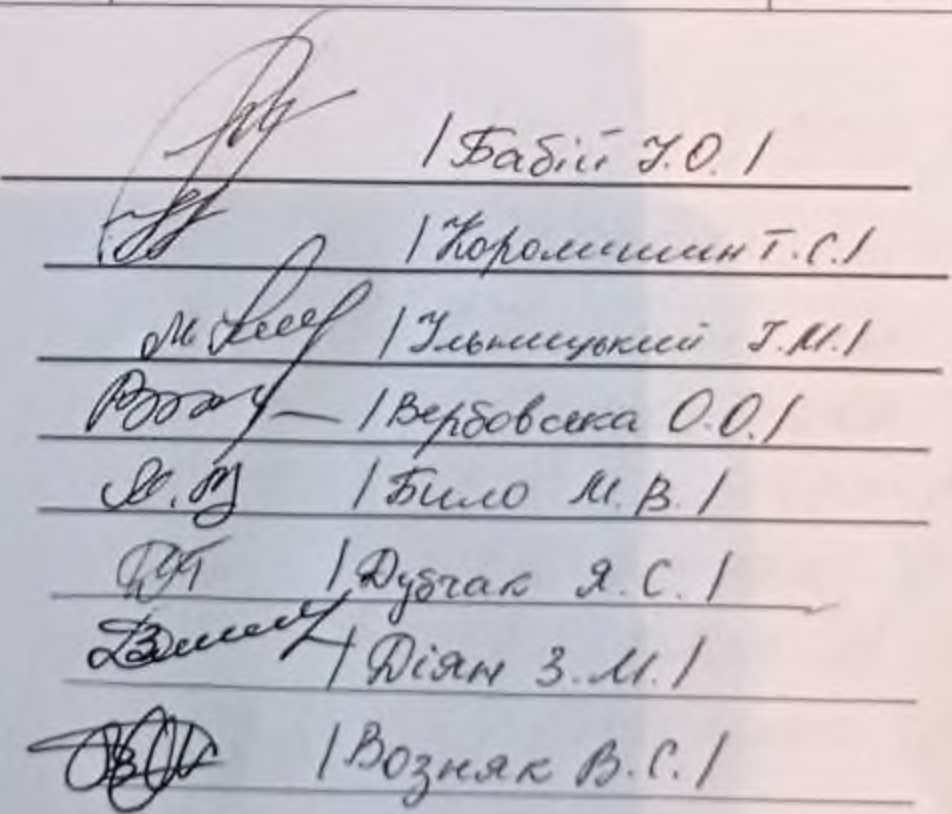 / Бабій І.О. /
/ Коромишин Т.С. /
/ Ільницький І.М. /
/ Вербовська О.О. /
/ Било М.В. /
/ Дубчак Я.С. /
/ Діян З.М. /
/ Возняк В.С. /